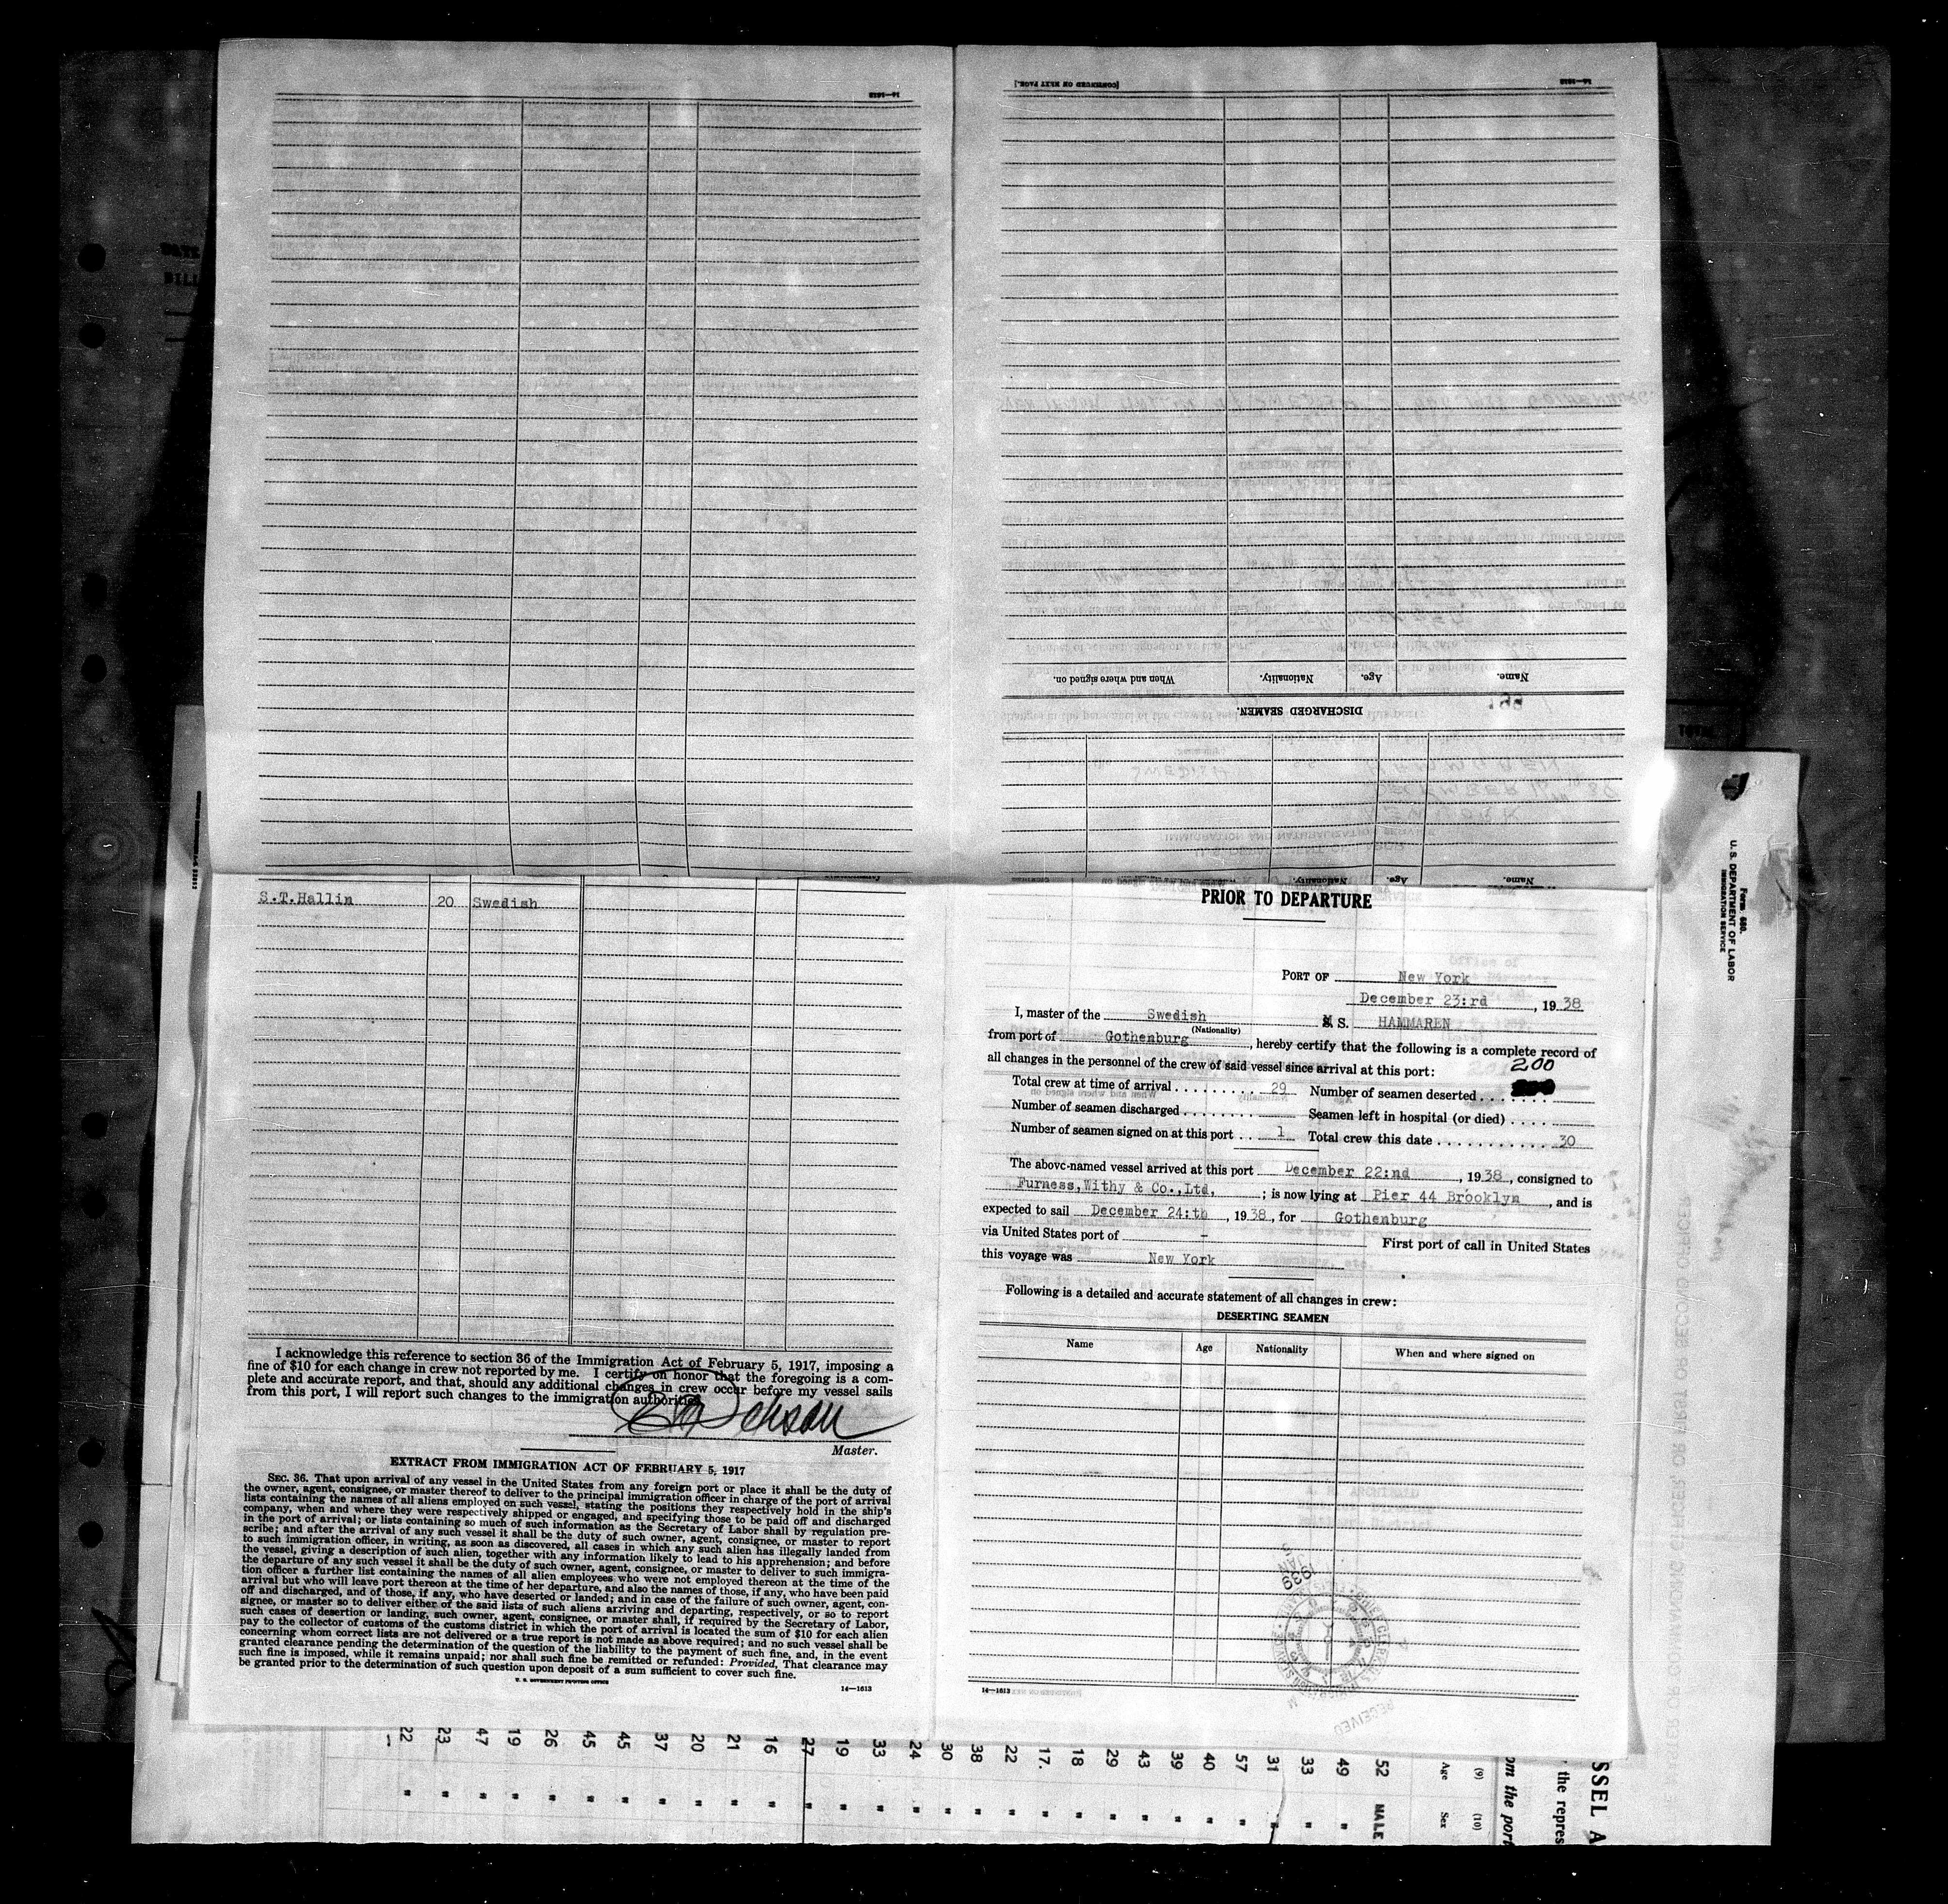 14—1613
[CONTINUED ON NEXT PAGE.]
14—1613
Name.
Age.
Nationality.
When and where signed on.
DISCHARGED SEAMEN.
Name.
Age.
Nationality.
S.T.Hallin 20 Swedish
I acknowledge this reference to section 36 of the Immigration Act of February 5, 1917, imposing a
fine of $10 for each change in crew not reported by me. I certify on honor that the foregoing is a com-
plete and accurate report, and that, should any additional changes in crew occur before my vessel sails
from this port, I will report such changes to the immigration authorities.
Master.
EXTRACT FROM IMMIGRATION ACT OF FEBRUARY 5, 1917
SEC. 36. That upon arrival of any vessel in the United States from any foreign port or place it shall be the duty of
the owner, agent, consignee, or master thereof to deliver to the principal immigration officer in charge of the port of arrival
lists containing the names of all aliens employed on such vessel, stating the positions they respectively hold in the ship's
company, when and where they were respectively shipped or engaged, and specifying those to be paid off and discharged
in the port of arrival; or lists containing so much of such information as the Secretary of Labor shall by regulation pre-
scribe; and after the arrival of any such vessel it shall be the duty of such owner, agent, consignee, or master to report
to such immigration officer, in writing, as soon as discovered, all cases in which any such alien has illegally landed from
the vessel, giving a description of such alien, together with any information likely to lead to his apprehension; and before
the departure of any such vessel it shall be the duty of such owner, agent, consignee, or master to deliver to such immigra-
tion officer a further list containing the names of all alien employees who were not employed thereon at the time of the
arrival but who will leave port thereon at the time of her departure, and also the names of those, if any, who have been paid
off and discharged, and of those, if any, who have deserted or landed; and in case of the failure of such owner, agent, con-
signee, or master so to deliver either of the said lists of such aliens arriving and departing, respectively, or so to report
such cases of desertion or landing, such owner, agent, consignee, or master shall, if required by the Secretary of Labor,
pay to the collector of customs of the customs district in which the port of arrival is located the sum of $10 for each alien
concerning whom correct lists are not delivered or a true report is not made as above required; and no such vessel shall be
granted clearance pending the determination of the question of the liability to the payment of such fine, and, in the event
such fine is imposed, while it remains unpaid; nor shall such fine be remitted or refunded: Provided, That clearance may
be granted prior to the determination of such question upon deposit of a sum sufficient to cover such fine.
U. S. GOVERNMENT PRINTING OFFICE
14—1613
PRIOR TO DEPARTURE
PORT OF New York
December 23:rd, 1938
I, master of the Swedish M. S. HAMMAREN
(Nationality)
from port of Gothenburg, hereby certify that the following is a complete record of
all changes in the personnel of the crew of said vessel since arrival at this port:
200
Total crew at time of arrival . . . . . . . . 29 Number of seamen deserted . . .
Number of seamen discharged . . . . . . . . Seamen left in hospital (or died) . . . .
Number of seamen signed on at this port . . . 1 Total crew this date . . . . . . . . . . . . 30
The above-named vessel arrived at this port December 22:nd, 1938, consigned to
Furness,Withy & Co.,Ltd. ; is now lying at Pier 44 Brooklyn, and is
expected to sail December 24:th, 1938, for Gothenburg
via United States port of - First port of call in United States
this voyage was New York
Following is a detailed and accurate statement of all changes in crew:
DESERTING SEAMEN
Name Age Nationality When and where signed on
14—1613
1939
RECEIVED
Form 680.
U.S. DEPARTMENT OF LABOR
IMMIGRATION SERVICE
SSEL A
the repres
om the port
(9) (10)
Age Sex
52 MALE
49 "
33 "
31 "
57 "
40 "
39 "
43 "
29 "
18 "
17. "
22 "
38 "
30 "
24 "
33 "
19 "
27 "
16 "
21 "
20 "
37 "
45 "
45 "
26 "
19 "
47 "
23 "
22 "